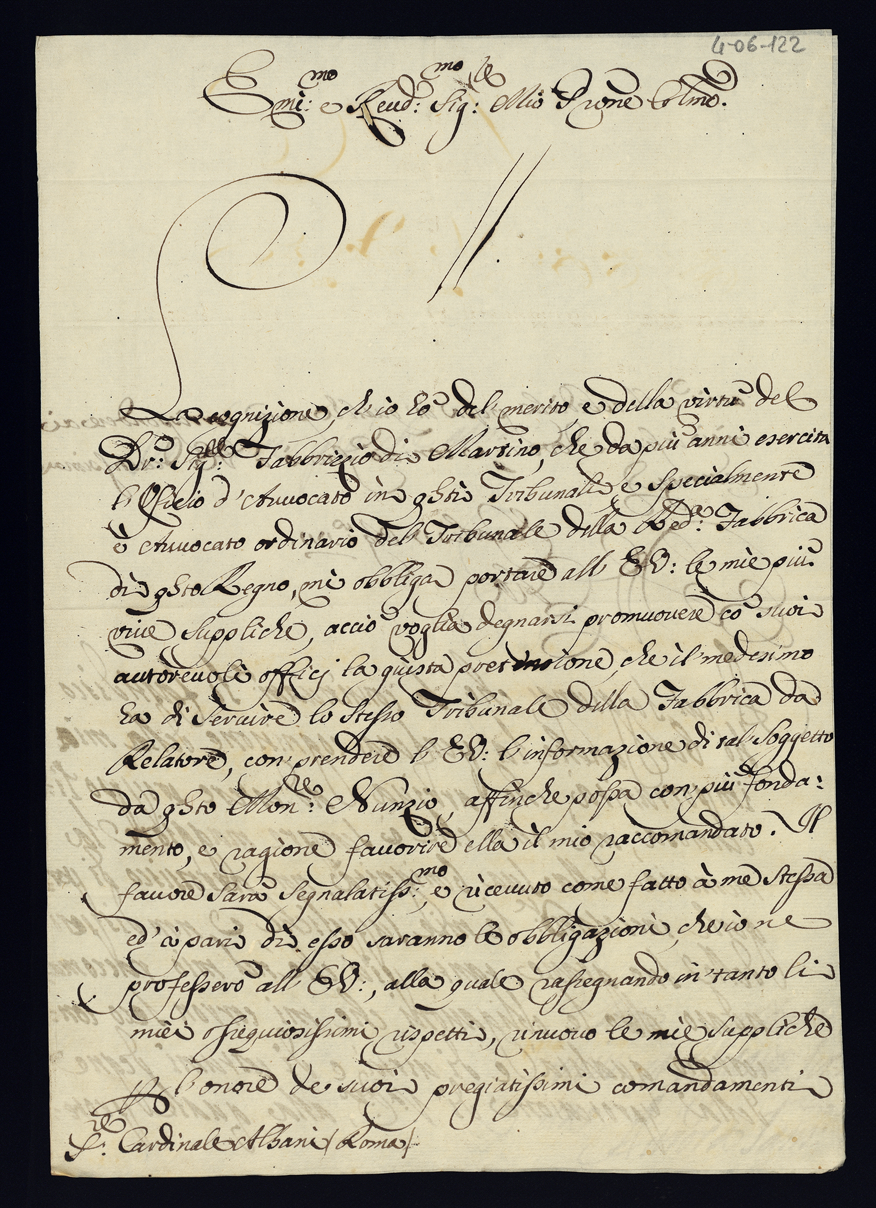 4-06-122
Emi:mo e Reud:mo Sig:re Mio Prone Colmo.
La cognizione, ch'io hò del merito e della virtù del
Dr: Sig:re Fabbrizio di Martino, che da più anni esercita
l'Officio d'Auuocato in qsti Tribunali, e specialmente
è Auuocato ordinario del Tribunale della Red:a Fabbrica
di qsto Regno, mi obbliga portare all' EV: le mie più
viue suppliche, acciò voglia degnarsi promuouere co' suoi
autoreuoli officj la giusta pretensione, che il medesimo
ha di seruire lo stesso Tribunale della Fabbrica da
Relatore, con prendere l'EV: l'informazione di tal soggetto
da qsto Mon:re Nunzio, affinche possa con più fonda:
mento, e ragione fauorire ella il mio raccomandato. Il
fauore sarà segnalatiss:mo, e riceuuto come fatto à me stessa
ed' à pari di esso saranno le obbligazioni, che io ne
professerò all' EV:, alla quale rassegnando in tanto li
miei ossequiosissimi rispetti, rinuouo le mie suppliche
P l'onore de suoi pregiatissimi comandamenti
S:re Cardinale Albani (Roma)